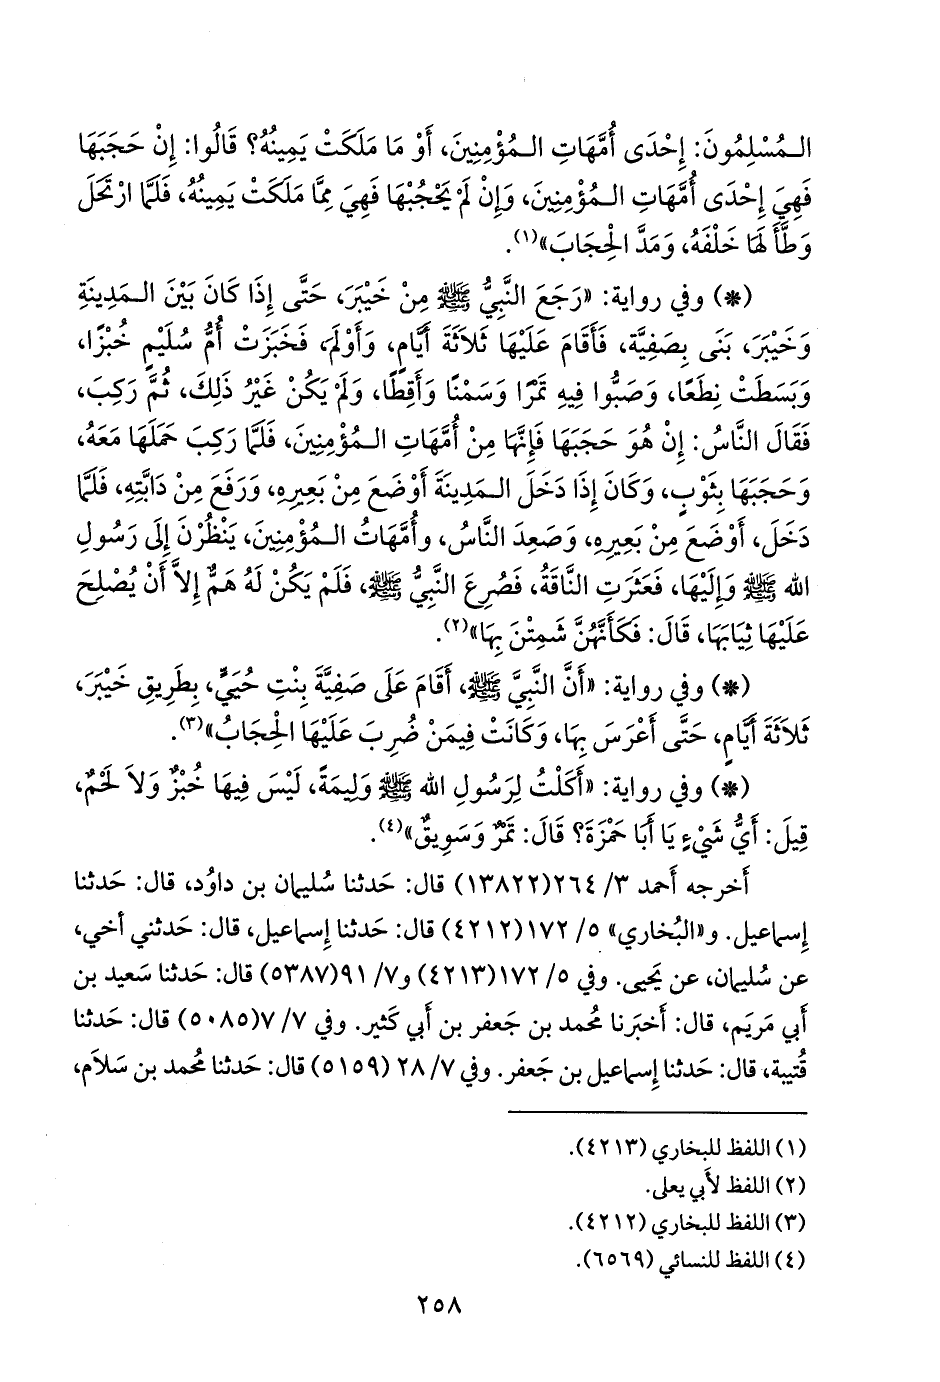 الـمُسْلِمُونَ: إِحْدَى أُمَّهَاتِ الـمُؤْمِنِينَ، أَوْ مَا مَلَكَتْ يَمِينُهُ؟ قَالُوا: إِنْ حَجَبَهَا
فَهِيَ إِحْدَى أُمَّهَاتِ الـمُؤْمِنِينَ، وَإِنْ لَمْ يَحْجُبْهَا فَهِيَ مِمَّا مَلَكَتْ يَمِينُهُ، فَلَمَّا ارْتَحَلَ
وَطَّأَ لَهَا خَلْفَهُ، وَمَدَّ الْحِجَابَ»(١).
(*) وفي رواية: «رَجَعَ النَّبِيُّ ﷺ مِنْ خَيْبَرَ، حَتَّى إِذَا كَانَ بَيْنَ الـمَدِينَةِ
وَخَيْبَرَ، بَنَى بِصَفِيَّة، فَأَقَامَ عَلَيْهَا ثَلاَثَةَ أَيَّامٍ، وَأَوْلَمَ، فَخَبَزَتْ أُمُّ سُلَيْمٍ خُبْزًا،
وَبَسَطَتْ نِطَعًا، وَصَبُّوا فِيهِ تَمْرًا وَسَمْنًا وَأَقِطًا، وَلَمْ يَكُنْ غَيْرُ ذَلِكَ، ثُمَّ رَكِبَ،
فَقَالَ النَّاسُ: إِنْ هُوَ حَجَبَهَا فَإِنَّهَا مِنْ أُمَّهَاتِ الـمُؤْمِنِينَ، فَلَمَّا رَكِبَ حَمَلَهَا مَعَهُ،
وَحَجَبَهَا بِثَوْبٍ، وَكَانَ إِذَا دَخَلَ الـمَدِينَةَ أَوْضَعَ مِنْ بَعِيرِهِ، وَرَفَعَ مِنْ دَابَّتِهِ، فَلَمَّا
دَخَلَ، أَوْضَعَ مِنْ بَعِيرِهِ، وَصَعِدَ النَّاسُ، وأُمَّهَاتُ الـمُؤْمِنِينَ، يَنْظُرْنَ إِلَى رَسُولِ
الله ﷺ وَإِلَيْهَا، فَعَثَرَتِ النَّاقَةُ، فَصُرِعَ النَّبِيُّ ﷺ، فَلَمْ يَكُنْ لَهُ هَمٌّ إِلاَّ أَنْ يُصْلِحَ
عَلَيْهَا ثِيَابَهَا، قَالَ: فَكَأَنَّهُنَّ شَمِتْنَ بِهَا»(٢).
(*) وفي رواية: «أَنَّ النَّبِيَّ ﷺ، أَقَامَ عَلَى صَفِيَّةَ بِنْتِ حُيَيٍّ، بِطَرِيقِ خَيْبَرَ،
ثَلاَثَةَ أَيَّامٍ، حَتَّى أَعْرَسَ بِهَا، وَكَانَتْ فِيمَنْ ضُرِبَ عَلَيْهَا الْحِجَابُ»(٣).
(*) وفي رواية: «أَكَلْتُ لِرَسُولِ الله ﷺ وَلِيمَةً، لَيْسَ فِيهَا خُبْزٌ وَلاَ لَحْمٌ،
قِيلَ: أَيُّ شَيْءٍ يَا أَبَا حَمْزَةَ؟ قَالَ: تَمْرٌ وَسَوِيقٌ»(٤).
أَخرجه أَحمد ٣/ ٢٦٤(١٣٨٢٢) قال: حَدثنا سُليمان بن داوُد، قال: حَدثنا
إِسماعيل. و«البُخاري» ٥/ ١٧٢(٤٢١٢) قال: حَدثنا إِسماعيل، قال: حَدثني أَخي،
عن سُليمان، عن يَحيى. وفي ٥/ ١٧٢(٤٢١٣) و٧/ ٩١(٥٣٨٧) قال: حَدثنا سَعيد بن
أَبي مَريَم، قال: أَخبَرنا مُحمد بن جَعفر بن أَبي كَثير. وفي ٧/ ٧(٥٠٨٥) قال: حَدثنا
قُتيبة، قال: حَدثنا إِسماعيل بن جَعفر. وفي ٧/ ٢٨ (٥١٥٩) قال: حَدثنا مُحمد بن سَلاَم،
(١) اللفظ للبخاري (٤٢١٣).
(٢) اللفظ لأَبي يعلى.
(٣) اللفظ للبخاري (٤٢١٢).
(٤) اللفظ للنسائي (٦٥٦٩).
٢٥٨